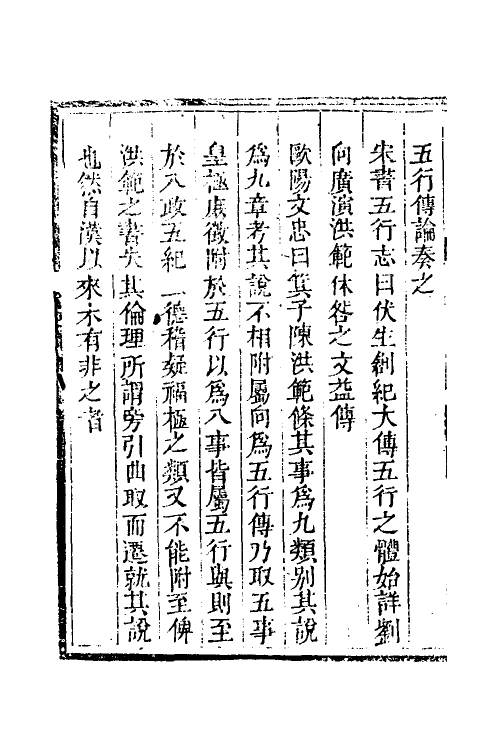 五行傳論奏之
宋書五行志曰伏生創紀大傳五行之體始詳劉
向廣演洪範休咎之文益傳
歐陽文忠曰箕子陳洪範條其事爲九類别其說
爲九章考其說不相附屬向爲五行傳乃取五事
皇極庶徵附於五行以爲八事皆屬五行與則至
於八政五紀三德稽疑福極之類又不能附至俾
洪範之書失其倫理所謂旁引曲取而遷就其說
也然自漢以來未有非之者